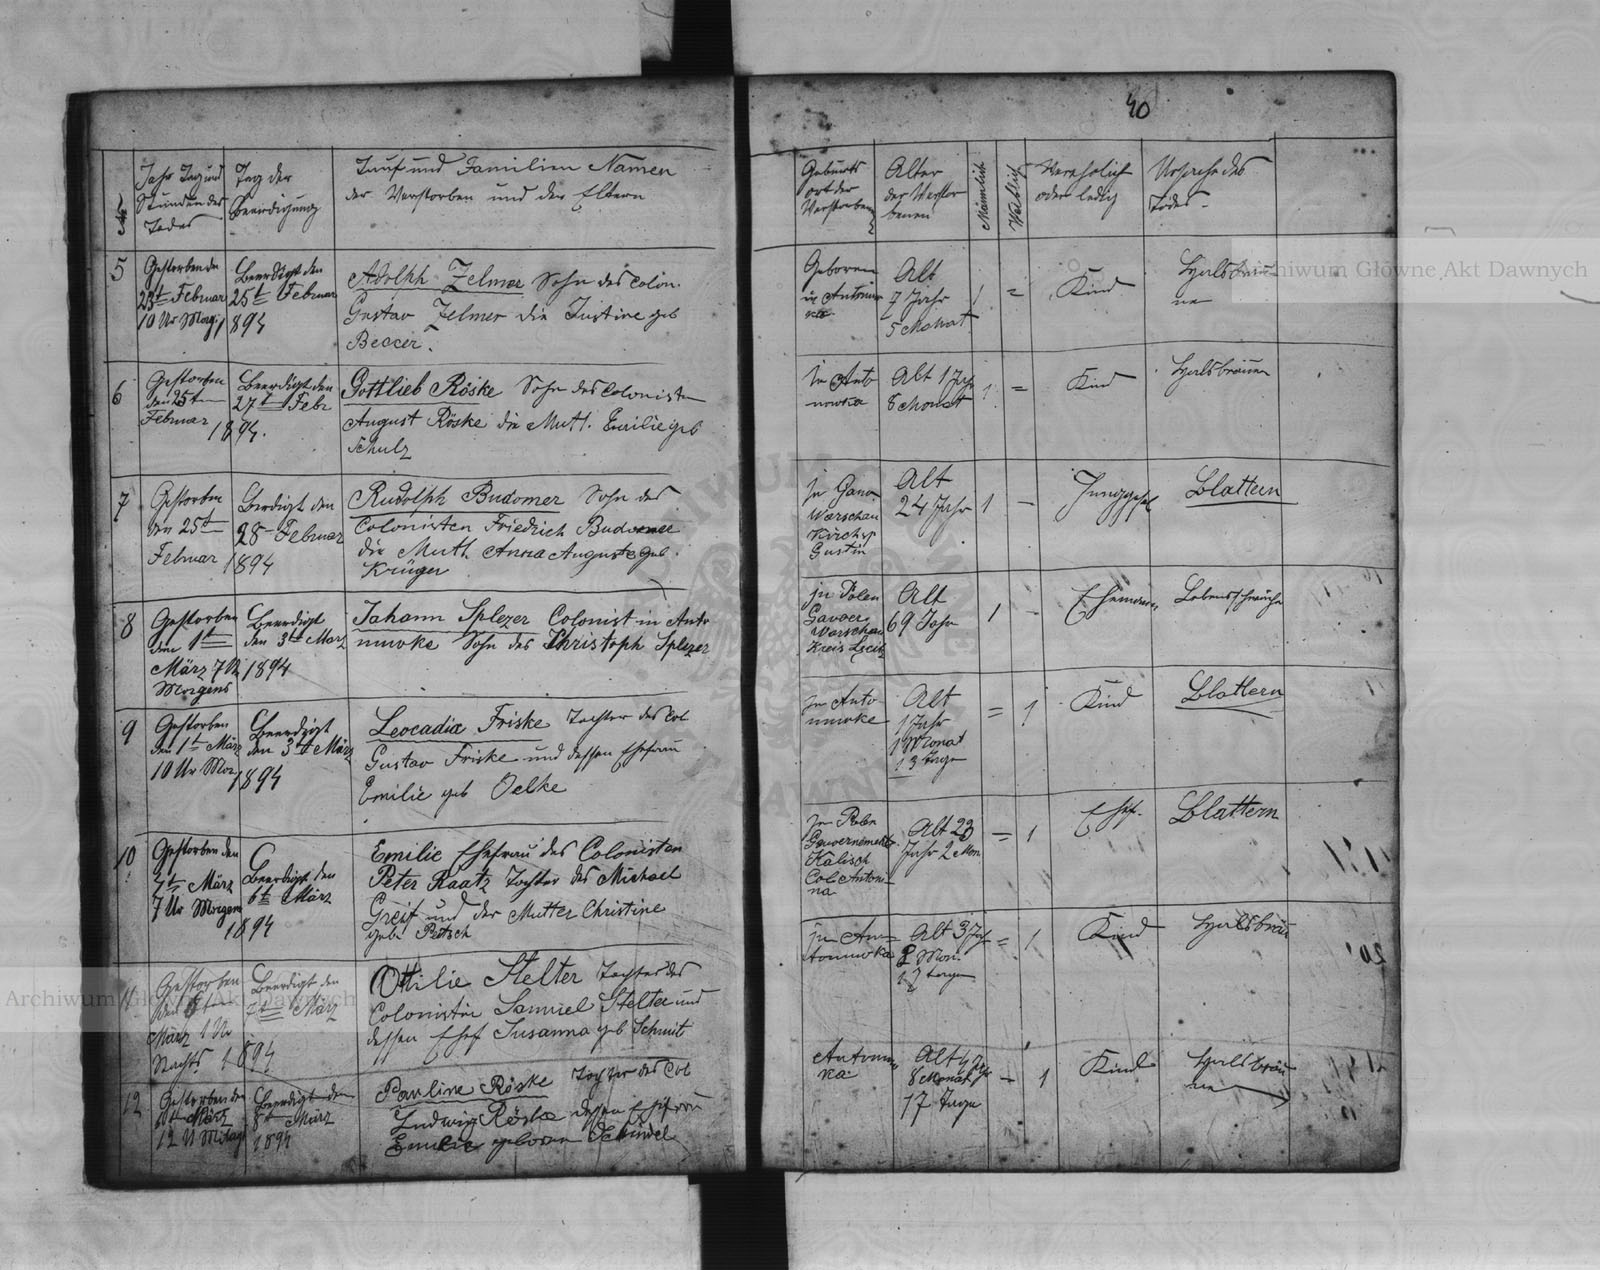 40
№
Jahr Tag und
Stunden des
Todes
Tag der
Beerdigung
Tauf und Familien Namen
der Verstorben und der Eltern
Geburts
ort der
Verstorbenen
Alter
der Verstor
benen
Mänlich
Weiblich
Verehelich
oder ledig
Ursache des
Todes
5
Gestorben den
23t Februar
10 Ur Morg.
Beerdigt den
25t Februar
1894
Adolph Zelmer Sohn des Colon.
Gustav Zelmer die Justine geb
Becker.
Geboren
in Antonu
Alt
7 Jahr
5 Monat
1
=
Kind
Halsbräu
ne
6
Gestorben
den 25t
Februar
Beerdigt den
27t Febr
1894.
Gottlieb Röske Sohn des Colonisten
August Röske die Mutt. Emilie geb
Schulz
in Anto
nowka
Alt 1 Jahr
8 Monat
1
=
Kind
Halsbräune
7
Gestorben
den 25t
Februar
Berdigt den
28 Februar
1894
Rudolph Budomer Sohn des
Colonisten Friedrich Budomer
die Muth Anna Auguste geb.
Krüger
in Gouv
Warschau
Kirchsp
Gustin
Alt
24 Jahr
1
–
Junggesel
Blattern
8
Gestorben
den 1t
März 7 Ur
Morgens
Beerdigt
den 3t März
1894
Johann Splezer Colonist in Anto
nuwke Sohn des Christoph Splezer
in Polen
Gavoer
Warschau
Kreis
Alt
69 Jahr
1
–
Ehemann
Lebensschwäche
9
Gestorben
den 1t März
10 Ur Mor
Beerdigt
den 3t März
1894
Leocadia Friske Tochter des Col
Gustav Friske und dessen Ehefrau
Emilie geb Oelke
in Anto
nuwke
Alt
1 Jahr
1 Monat
13 Tage
=
1
Kind
Blattern
10
Gestorben den
März
7 Ur Morgens
Beerdigt den
6t März
1894
Emilie Ehefrau des Colonisten
Peter Raatz Tochter des Michael
Greif und der Mutter Christine
gebe Petsch
in Polen
Gouvernement
Kalisch
Col. Antoni
na
Alt 23
Jahr 2 Mon.
=
1
Ehef.
Blattern
11
Gestorben
den
März 1 Ur
Nachts
Beerdigt den
7t März
1894
Ottilie Stelter Tochter des
Colonisten Samuel Stelter und
dessen Ehef Susanna geb Schmit
in An=
tonuwka
Alt 3 Jahr
2 Mon.
17 tage
=
1
Kind
Halsbräu
12
Gestorben den
März
12 U Mitag
Beerdigt den
8t März
1894
Pauline Röske Tochter des Col
Ludwig Röske dessen Ehefrau
Emilie geboren Schindel
Antonu
ka
Alt 4 Jahr
8 Monat
17 Tage
–
1
Kind
Halsbräu
ne
Archiwum Główne Akt Dawnych
Archiwum Główne Akt Dawnych